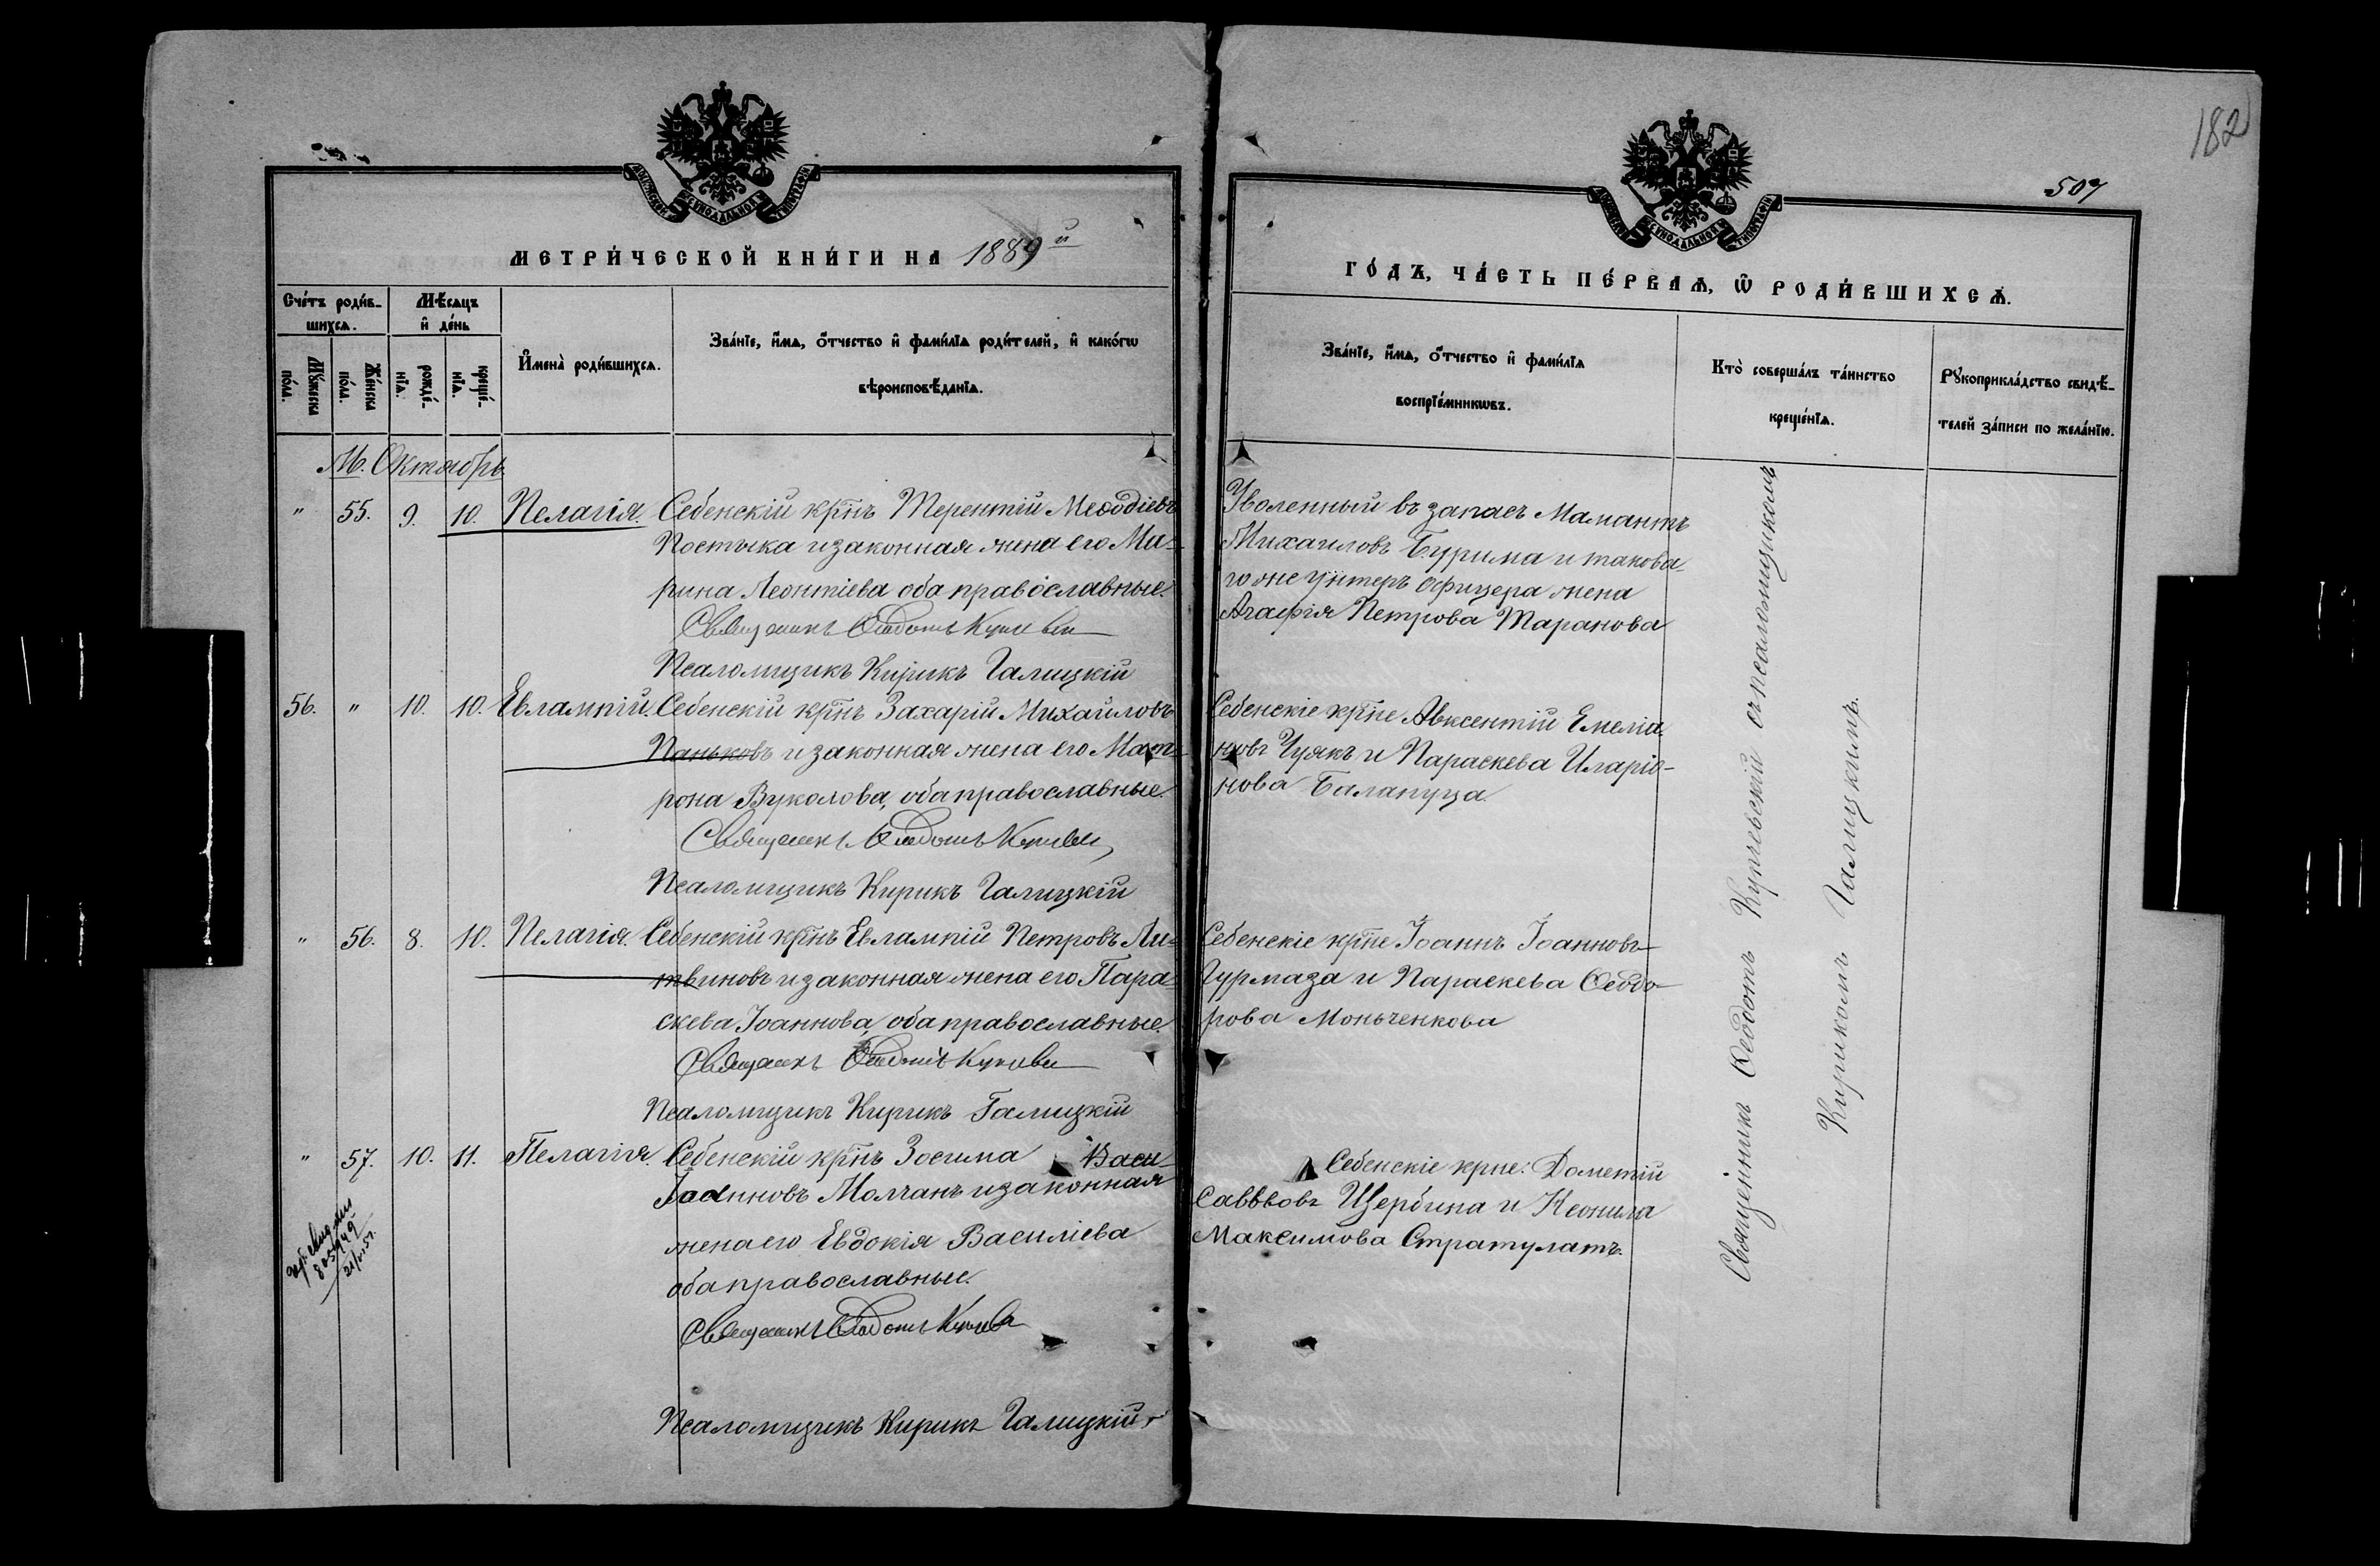 182
507
МЕТРИ́ЧЕСКОЙ КНИ́ГИ НА 1889й
ГО́ДЪ, ЧА́СТЬ ПЕ́РВАѦ, Ѡ҆ РОДИ́ВШИХСѦ.
Сче́тъ роди́в-
шихсѧ.
Мѣ́сѧцъ
и҆ де́нь
Мꙋ́жеска
по́ла.
Же́нска
по́ла.
рожде́-
нїѧ.
креще́-
нїѧ.
И҆мена̀ роди́вшихсѧ.
Зва́нїе, и҆́мѧ, ѻ҆́тчество и҆ фами́лїѧ роди́телей, и҆ како́гѡ
вѣроисповѣ́данїѧ.
Зва́нїе, и҆́мѧ, ѻ҆́тчество и҆ фами́лїѧ
воспрїе́мникѡвъ.
Кто̀ соверша́лъ та́инство
креще́нїѧ.
Рꙋкоприкла́дство свидѣ́-
телей за́писи по жела́нїю.
М. Октябрь
" 55. 9. 10. Пелагія. Себенскій крнъ Терентій Меѳодіевъ
Постыка и законная жена его Ма-
рина Леонтіева оба православные.
Священникъ Ѳеодотъ
Псаломщикъ Кирикъ Галицкій
Уволенный въ запасъ Мамантъ
Михаиловъ Бурима и такова-
го же унтеръ офицера жена
Агафія Петрова Таранова
56. " 10. 10. Евлампій. Себенскій крнъ Захарій Михайловъ
Паньковъ и законная жена его Мат-
рона Вуколова, оба православные.
Священникъ Ѳеодотъ
Псаломщикъ Кирикъ Галицкій
Себенскіе крне Авксентій Емеліа-
новъ Чуякъ и Параскева Иларіо-
нова Балапуца.
" 56. 8. 10. Пелагія. Себенскій крнъ Евлампій Петровъ Ли-
твиновъ и законная жена его Пара-
скева Іоаннова, оба православные.
Священникъ Ѳеодотъ
Псаломщикъ Кирикъ Галицкій
Себенскіе крне Іоаннъ Іоанновъ
Гурмаза и Параскева Ѳеодо-
рова Моньченкова
" 57. 10. 11. Пелагія. Себенскій крнъ Зосима Васи-
Іоанновъ Молчанъ и законная
жена его Евдокія Василіева
оба православные.
Священникъ Ѳеодотъ
Псаломщикъ Кирикъ Галицкій
Себенскіе крне: Дометій
Саввовъ Щербина и Неонила
Максимова Стратулатъ.
Священникъ Ѳеодотъ Купчевскій съ псаломщикомъ
Кирикомъ Галицкимъ.